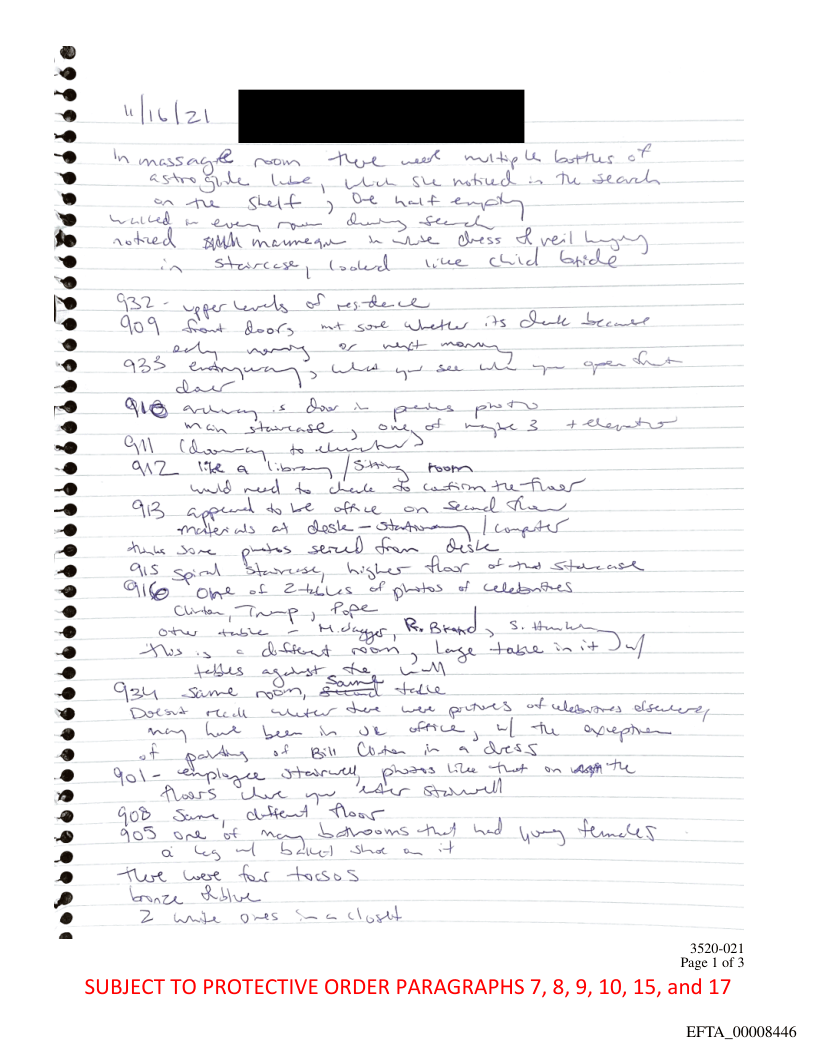 11/16/21
In massage room there were multiple bottles of
astroglide lube, which she noticed in the search
on the shelf, one half empty
walked in every room during search
noticed mannequin in white dress & veil hanging
in staircase, looked like child bride
932 - upper levels of residence
909 front doors, not sure whether its dark because
early morning or next morning
933 entryway, what you see when you open front
door
910 archway is door in previous photo
main staircase, one of maybe 3 + elevator
911 (doorway to elevator)
912 like a library/sitting room
would need to check to confirm the floor
913 appeared to be office on second floor
materials at desk - stationary/computer
thinks some photos seized from desk
915 spiral staircase, higher floor of that staircase
916 one of 2 tables of photos of celebrities
Clinton, Trump, Pope
other table - M. Jagger, R. Brand, S.
this is a different room, large table in it w/
tables against the wall
924 same room, same table
Doesn't recall whether there were pictures of celebrities elsewhere,
may have been in JE office, w/ the exception
of painting of Bill Clinton in a dress
901 - employee stairwell, photos like that on the
floors where you enter stairwell
908 same, different floor
905 one of many bathrooms that had young females
a leg w/ ballet shoe on it
there were four torsos
bronze & blue
2 white ones in a closet
3520-021
Page 1 of 3
SUBJECT TO PROTECTIVE ORDER PARAGRAPHS 7, 8, 9, 10, 15, and 17
EFTA_00008446